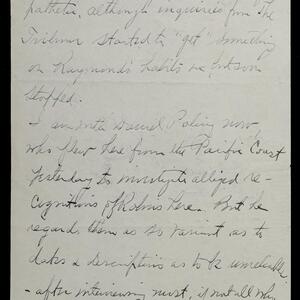 pathetic, although inquiries from The
Tribune started to "get" something
on Raymond's habits
stopped.
I am with Daniel Poling now
who flew here from the Pacific Coast
yesterday to investigate alleged re-
cognitions of Robins here. But he
regards them as so variant as to
dates & descriptions as to be unreliable
- after interviewing most, if not all who